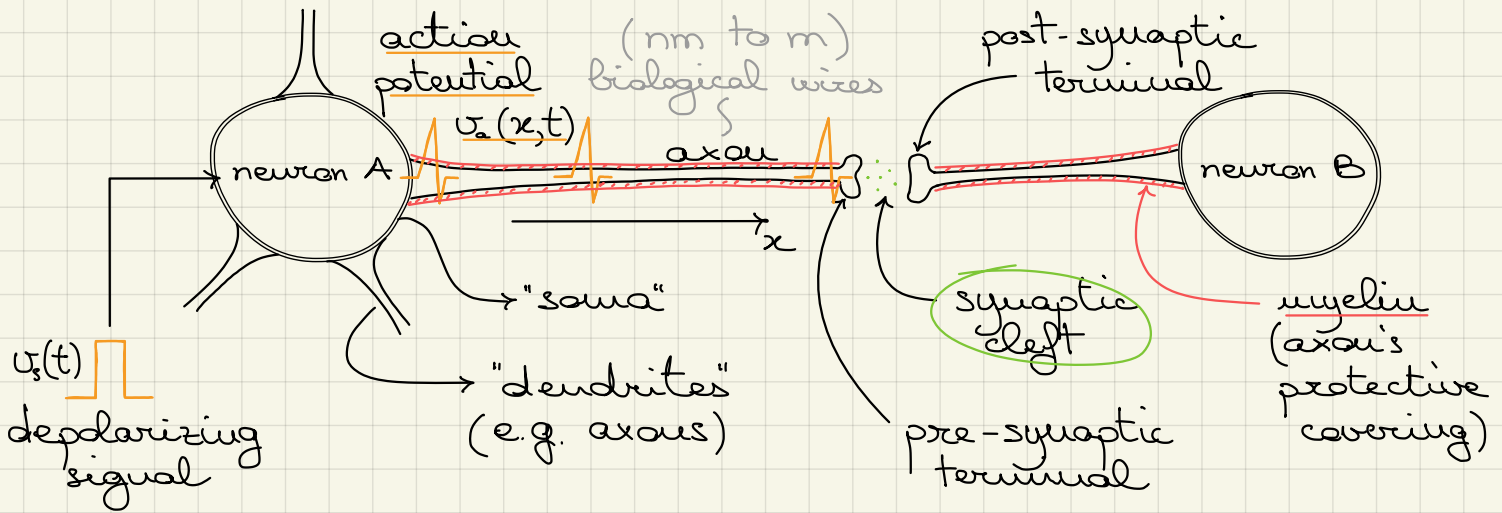 action
potential
(nm to m)
biological wires
post-synaptic
terminal
υₐ(x,t)
axon
neuron A
neuron B
x
"soma"
synaptic
cleft
myelin
(axon's
protective
covering)
υₛ(t)
depolarizing
signal
"dendrites"
(e.g. axons)
pre-synaptic
terminal